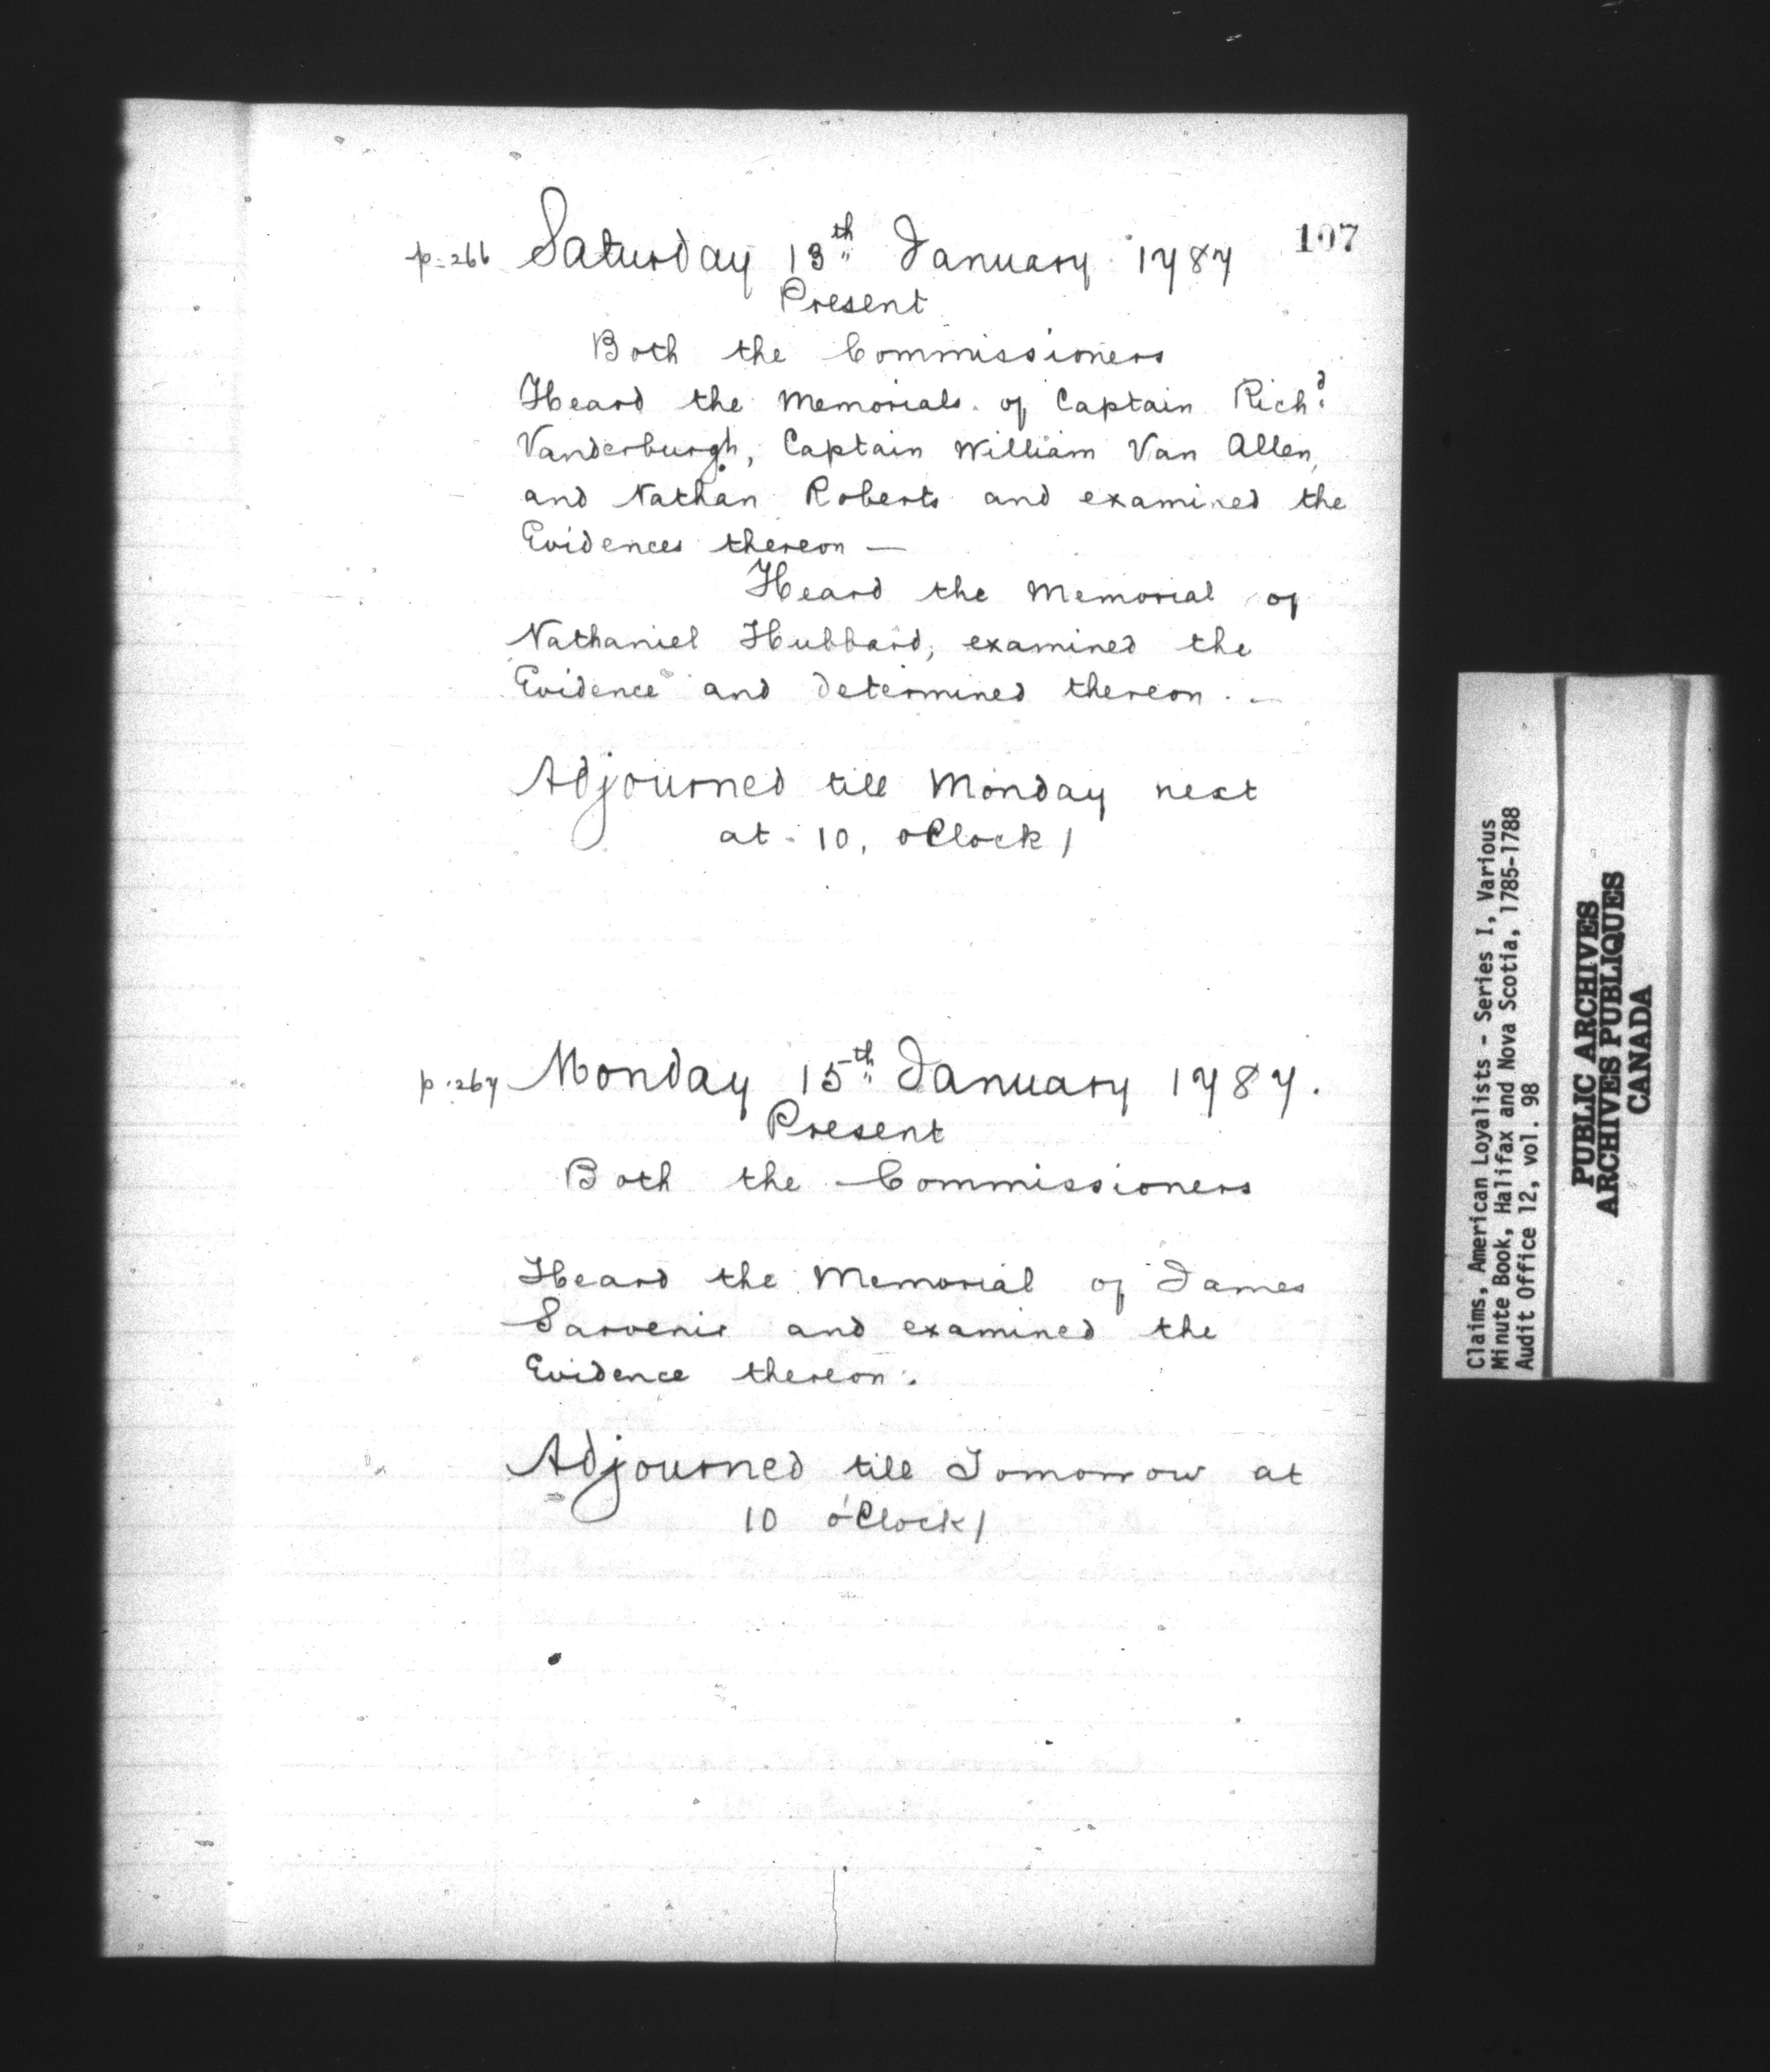 107
p. 266 Saturday 13th January 1787
Present
Both the Commissioners
Heard the Memorials of Captain Richd
Vanderburgh, Captain William Van Allen,
and Nathan Roberts and examined the
Evidences thereon —
Heard the Memorial of
Nathaniel Hubbard, examined the
Evidence and determined thereon. —
Adjourned till Monday next
at 10, oClock/
p. 267 Monday 15th January 1787.
Present
Both the Commissioners
Heard the Memorial of James
and examined the
Evidence thereon.
Adjourned till Tomorrow at
10 o'Clock/
Claims, American Loyalists - Series I, Various
Minute Book, Halifax and Nova Scotia, 1785-1788
Audit Office 12, vol. 98
PUBLIC ARCHIVES
ARCHIVES PUBLIQUES
CANADA